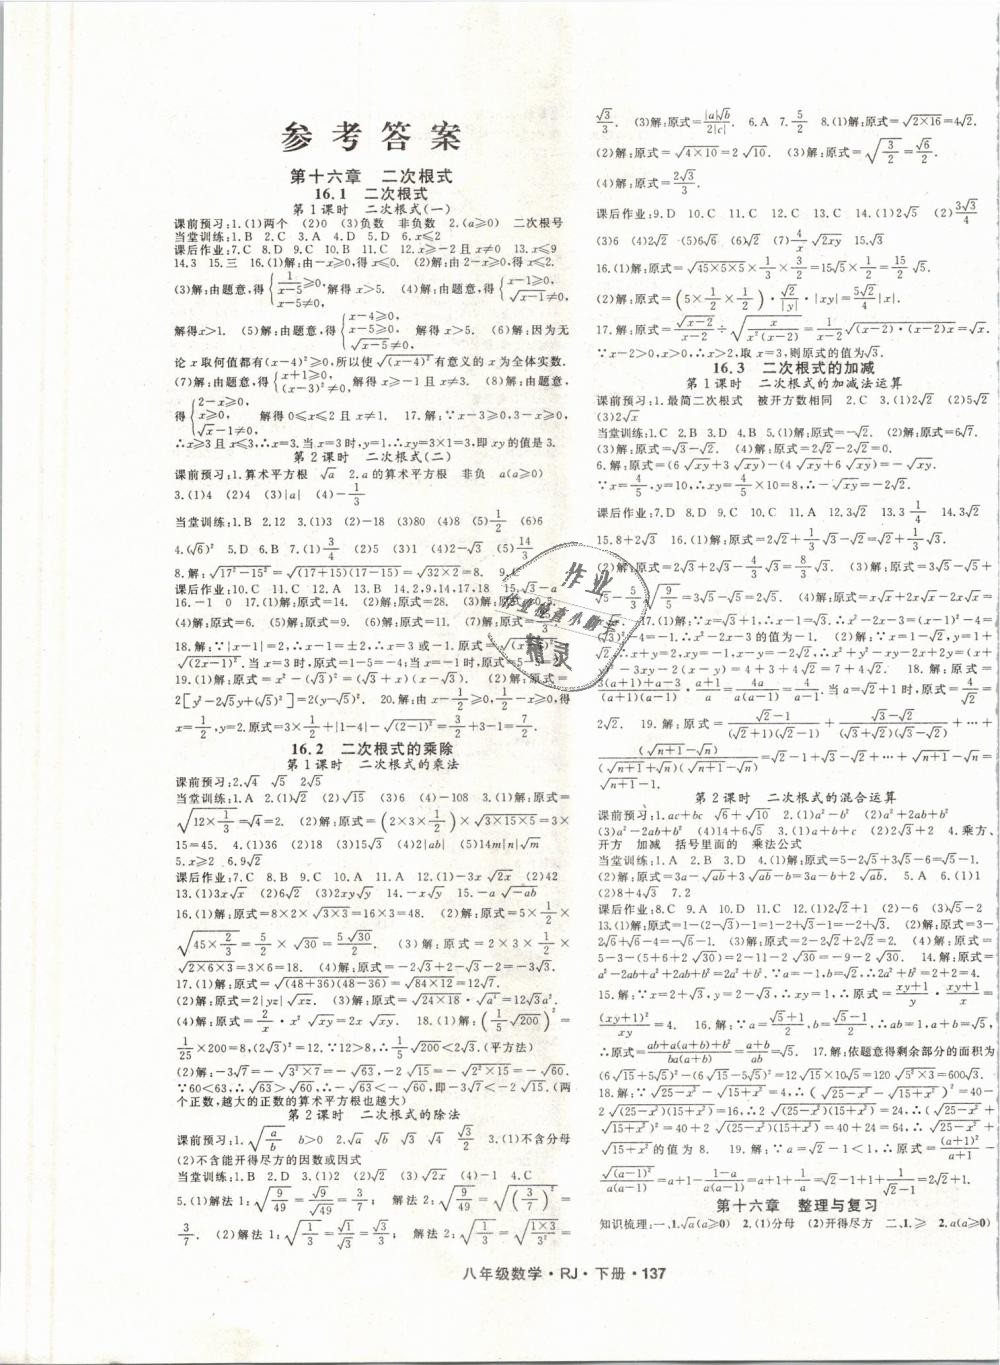 参考答案
第十六章 二次根式
16.1 二次根式
第1课时 二次根式(一)
课前预习:1.(1)两个 (2)0 (3)负数 非负数 2.(a≥0) 二次根号
当堂训练:1.B 2.C 3.A 4.D 5.D 6.x≤2
课后作业:7.C 8.D 9.C 10.B 11.C 12.x≥-2且x≠0 13.x≤9
14.3 15.三 16.(1)解:由-x≥0,得x≤0. (2)解:由2-x≥0,得x≤2.
(3)解:由题意,得{1/(x-5)≥0, x-5≠0, 解得x>5. (4)解:由题意,得{x-1≥0, √(x-1)≠0,
解得x>1. (5)解:由题意,得{x-4≥0, x-5≥0, √(x-5)≠0 解得x>5. (6)解:因为无
论x取何值都有(x-4)²≥0,所以使√((x-4)²)有意义的x为全体实数.
(7)解:由题意,得{x+1≥0, (x-3)⁻²≠0, 解得x≥-1且x≠3. (8)解:由题意,
得{2-x≥0, x≥0, √x-1≠0, 解得0≤x≤2且x≠1. 17.解:∵x-3≥0,3-x≥0,
∴x≥3且x≤3,∴x=3.当x=3时,y=1,∴xy=3×1=3,即xy的值是3.
第2课时 二次根式(二)
课前预习:1.算术平方根 √a 2.a的算术平方根 非负 a(a≥0)
3.(1)4 (2)4 (3)|a| (4)-1/3
当堂训练:1.B 2.12 3.(1)3 (2)-18 (3)80 (4)8 (5)1/2 (6)6
4.(√6)² 5.D 6.B 7.(1)3/4 (2)5 (3)1 (4)2-√3 (5)14/3
8.解:√(17²-15²)=√((17+15)(17-15))=√(32×2)=8.
课后作业:10.C 11.C 12.A 13.B 14.2,9,14,17,18 15.√3-a
16.-1 0 17.(1)解:原式=14. (2)解:原式=28. (3)解:原式=0.5.
(4)解:原式=6. (5)解:原式=9. (6)解:原式=11.
18.解:∵|x-1|=2,∴x-1=±2,∴x=3或-1.原式=
√((2x-1)²).当x=3时,原式=1-5=-4;当x=-1时,原式=5-5=
19.(1)解:原式=x²-(√3)²=(x+√3)(x-√3). (2)解:原式=
2[y²-2√5y+(√5)²]=2(y-√5)². 20.解:由x-1/2≥0,1/2-x≥0,得
x=1/2,y=2.原式=3×1/2+|1-4|-√((2-1)²)=3/2+3-1=7/2.
16.2 二次根式的乘除
第1课时 二次根式的乘法
课前预习:2.√4 √5 2√5
当堂训练:1.A 2.(1)√2 (2)√15 (3)6 (4)-108 3.(1)解:原式=
√(12×1/3)=√4=2. (2)解:原式=(2×3×1/2)×√(3×15×5)=3×
15=45. 4.(1)36 (2)18 (3)15√3 (4)2|ab| (5)14m|n|√m
5.x≥2 6.9√2
课后作业:7.C 8.B 9.C 10.A 11.A 12.(1)-3x√(2x) (2)42
13.(1)3x√x (2)6√2 (3)2xy√y 14.-x√x 15.-a√(-ab)
16.(1)解:原式=8×2×√(3×3)=16×3=48. (2)解:原式=5/2×
√(45×2/3)=5/2×√30=5√30/2. (3)解:原式=2×3×1/2×
√(2×6×3)=3×6=18. (4)解:原式=-2√3+2-√3-2=-3√3.
17.(1)解:原式=√((48+36)(48-36))=√(84×12)=12√7.
(2)解:原式=2|yz|√(xz). (3)解:原式=√(24×18)·√(a⁴)=12√3a².
(4)解:原式=2/x·x²√(xy)=2x√(xy). 18.(1)解:(1/5√200)²=
1/25×200=8,(2√3)²=12.∵12>8,∴1/5√200<2√3.(平方法)
(2)解:-3√7=-√(3²×7)=-√63. -2√15=-√(2²×15)=-√60.
∵60<63,∴√63>√60,∴-√63<-√60,即-3√7<-2√15.(两
个正数,越大的正数的算术平方根也越大)
第2课时 二次根式的除法
课前预习:1.√(a/b) b>0 2.√a √3 √4 √3/2 3.(1)不含分母
(2)不含能开得尽方的因数或因式
当堂训练:1.B 2.D 3.(1)2 (2)√2 (3)√(2x) (4)-1 4.C
5.(1)解法1:√(9/49)=√9/√49=3/7; 解法2:√(9/49)=√((3/7)²)=
3/7. (2)解法1:√(1/3)=√1/√3=√3/3; 解法2:√(1/3)=√((1×3)/3²)=
√3/3. (3)解:原式=|a|√b/2|c|. 6.A 7.5/2 8.(1)解:原式=√(2×16)=4√2.
(2)解:原式=√(4×10)=2√10. (3)解:原式=√(3/2)=√6/2.
(4)解:原式=2√3/3.
课后作业:9.D 10.C 11.C 12.C 13.C 14.(1)2√5 (2)3√3/4
(3)6 (4)2√2 (5)6√6 (6)√2 (7)4/x√(2xy) 15.√3
16.(1)解:原式=√(45×5×5)×1/3×3/2=15√5×1/2=15/2√5.
(2)解:原式=(5×1/2×1/2)·√2/|y|·|xy|=5√2/4|x|.
17.解:原式=√(x-2)/(x-2)÷√(x/(x²(x-2)))=1/(x-2)√((x-2)·(x-2)x)=√x.
∵x-2>0,x>0,∴x>2,取x=3,则原式的值为√3.
16.3 二次根式的加减
第1课时 二次根式的加减法运算
课前预习:1.最简二次根式 被开方数相同 2.C 3.(1)2√2 (2)5√2
(3)2√x
当堂训练:1.C 2.A 3.D 4.B 5.(1)解:原式=-√2. (2)解:原式=6√7.
(3)解:原式=√3-√2. (4)解:原式=2√2-2√2=0.
6.解:原式=(6√(xy)+3√(xy))-(4√(xy)+6√(xy))=-√(xy).
∵x=4/5,y=10,∴xy=4/5×10=8,∴-√(xy)=-2√2.
课后作业:7.D 8.D 9.C 10.C 11.A 12.3√2 13.3 1/4 14.3√2
15.8+2√3 16.(1)解:原式=2√2+1/2√3-√2=√2+1/2√3.
(2)解:原式=2√3+2√3-4/3√3=8/3√3. (3)解:原式=3√5-
(4)解:原式=x√x+2x√x-2x√x=
17.解:(1)∵x=√3+1,∴x-1=√3,∴x²-2x-3=(x-1)²-4=
(√3)²-4=-1.∴x²-2x-3=-1.
18.解:原式=
3(a+1)+a-3/(a+1)(a-1)·(a+1)/a=4a/a(a-1)=4/(a-1).当a=√2+1时,原式=4/√2=
2√2. 19.解:原式=(√2-1)/((√2+1)(√2-1))+(√3-√2)/((√3+√2)(√3-√2))+…+
(√(n+1)-√n)/((√(n+1)+√n)(√(n+1)-√n))=√2-1+√3-√2+…+√(n+1)-√n=
√(n+1)-1.
第2课时 二次根式的混合运算
课前预习:1.ac+bc √6+√10 2.(1)a²-b² (2)a²+2ab+b²
(3)a²-2ab+b² (4)14+6√5 3.(1)a+b+c (2)2√3+2 4.乘方、
开方 加减 括号里面的 乘法公式
当堂训练:1.A 2.B 3.D 4.(1)解:原式=5-2√5+3√5-6=√5-1.
(2)解:原式=3a-√(ab)+3√(ab)-b=3a+2√(ab)-b. 5.A 6.(1)1
(2)8+4√3 7.2
课后作业:8.C 9.A 10.D 11.C 12.(1)2√2+1 (2)-6 (3)√5-2
13.(1)解:原式=1-(2-√3)-1=1-2+√3-1=-2+√3. (2)解:原式=3-
2√6+√6-4=-√6-1. (3)解:原式=2-2√2+2=2√2. (4)解:原式=
5-3-(5+6+2√30)=2-11-2√30=-9-2√30. 14.解:原式=
a²-2ab+a²+2ab+b²=2a²+b².∵a=-1,b=√2,∴原式=2+2=4.
15.解:∵x=2+√3,y=2-√3,∴xy=1,x+y=4,∴原式=(xy+1)/y·(xy+1)/x=
(xy+1)²/xy=4. 16.解:∵a=(√5+1)/2,b=(√5-1)/2,∴ab=1,a+b=√5,
∴原式=(ab+a(a+b)+b²)/ba(a+b)=(a+b)/ab=√5. 17.解:依题意得剩余部分的面积为
(2√15+5√6)²-(6√15-5√6)²=12√15×10√5=120√(5²×3)=600√3.
18.解:∵√(25-x²)-√(15+x²)=4,∴(√(25-x²)-√(15+x²))²=40-
2√((25-x²)(15+x²))=16,∴2√((25-x²)(15+x²))=24,∴(√(25-x²)+
√(15+x²))²=40+2√((25-x²)(15+x²))=40+24=64,∴√(25-x²)+
√(15+x²)的值为8. 19.解:∵a=√2-1<1,∴原式=(a+1)²/(a+1)-
√((a-1)²)/a(a-1)=a+1-(1-a)/a(a-1)=a+1+1/a=√2-1+1+1/(√2-1)=2√2+1.
第十六章 整理与复习
知识梳理:一、1.√a(a≥0) 2.(1)分母 (2)开得尽方 二、1.≥ 2.a(a≥0)
八年级数学·RJ·下册·137
作业
作业检查小助手
精灵